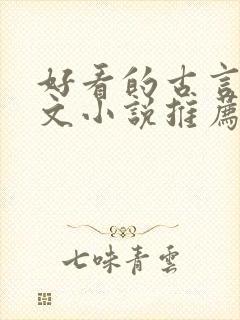 好看的古言
文小說推薦
七味青雲